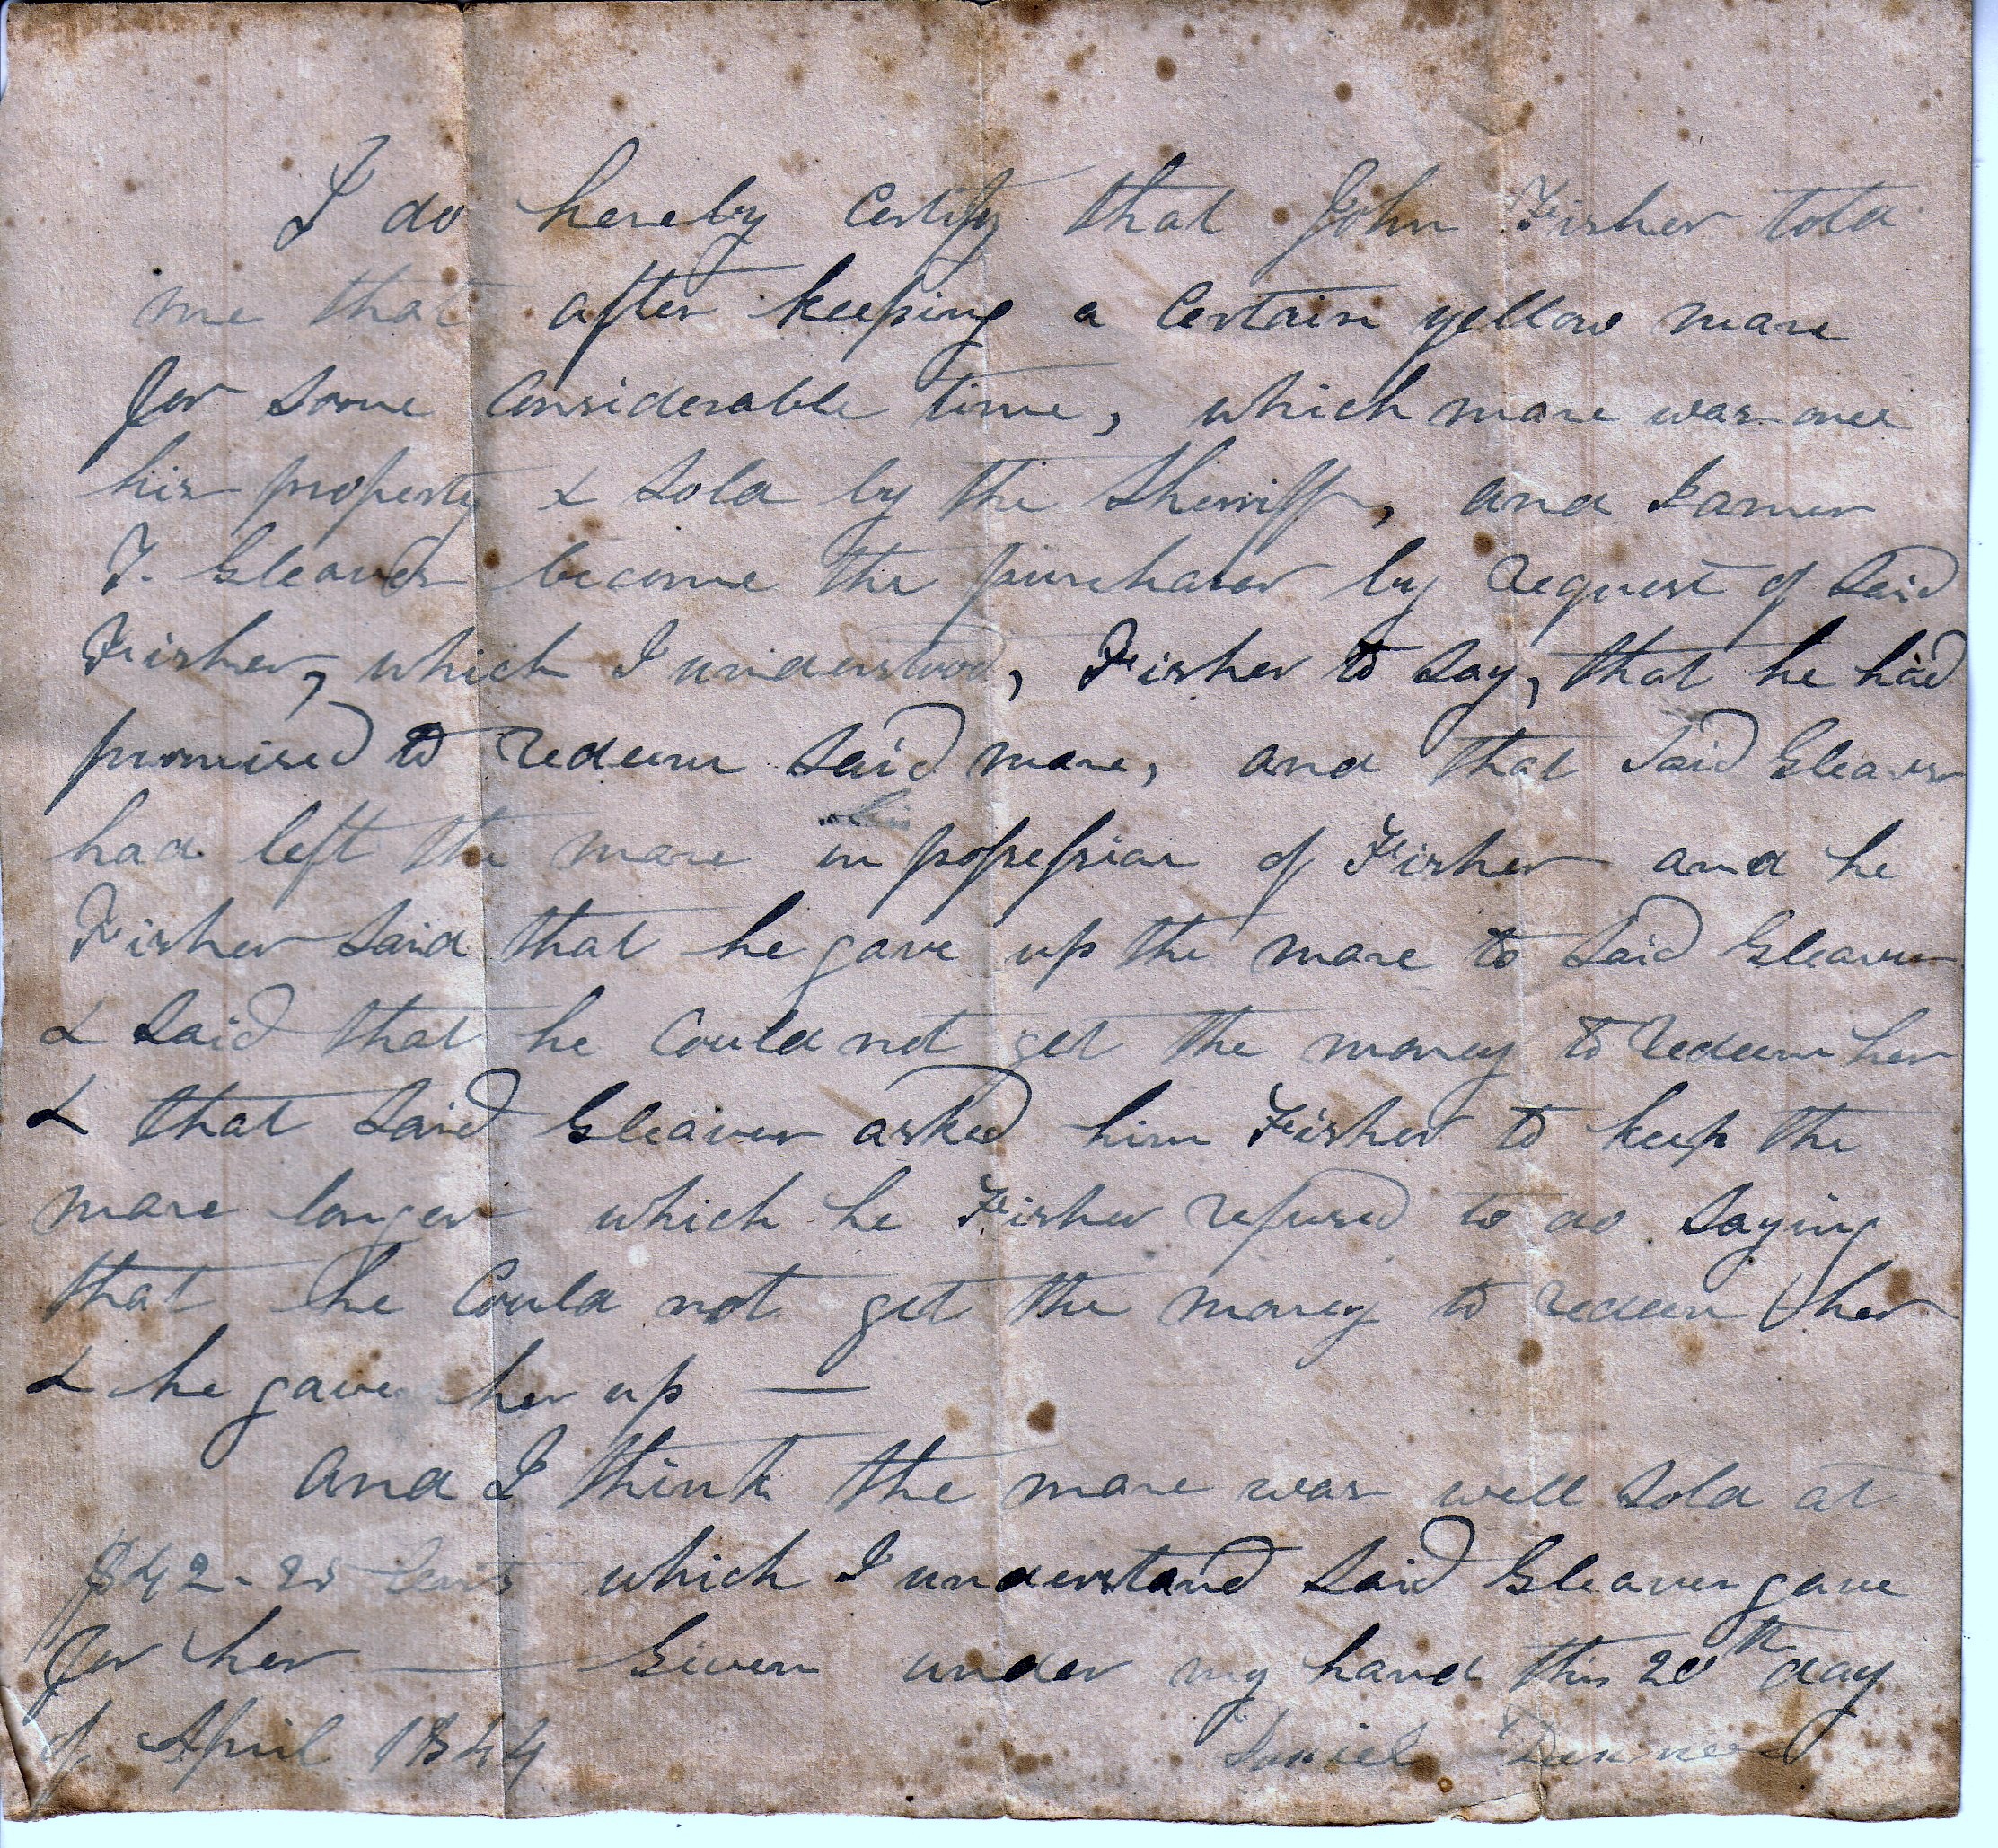 I do hereby Certify that John Fisher told
me that after keeping a Certain yellow mare
for some Considerable time, which mare was once
his property & sold by the Sherriff, and James
T. Gleaves become the purchaser by request of Said
Fisher, which I understood, Fisher to say, that he had
promised to redeem Said mare, and that Said Gleaves
had left the mare in possession of Fisher and he
Fisher said that he gave up the mare to Said Gleaves
& Said that he Could not get the money to redeem her
& that Said Gleaves asked him Fisher to keep the
mare longer which he Fisher refused to do Saying
that he Could not get the money to redeem her
& he gave her up —
and I think the mare was well sold at
which I understand Said Gleaves gave
for her — Given under my hand this 20th day
of April 1844 Daniel